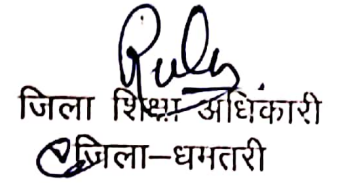 जिला शिक्षा अधिकारी
जिला–धमतरी